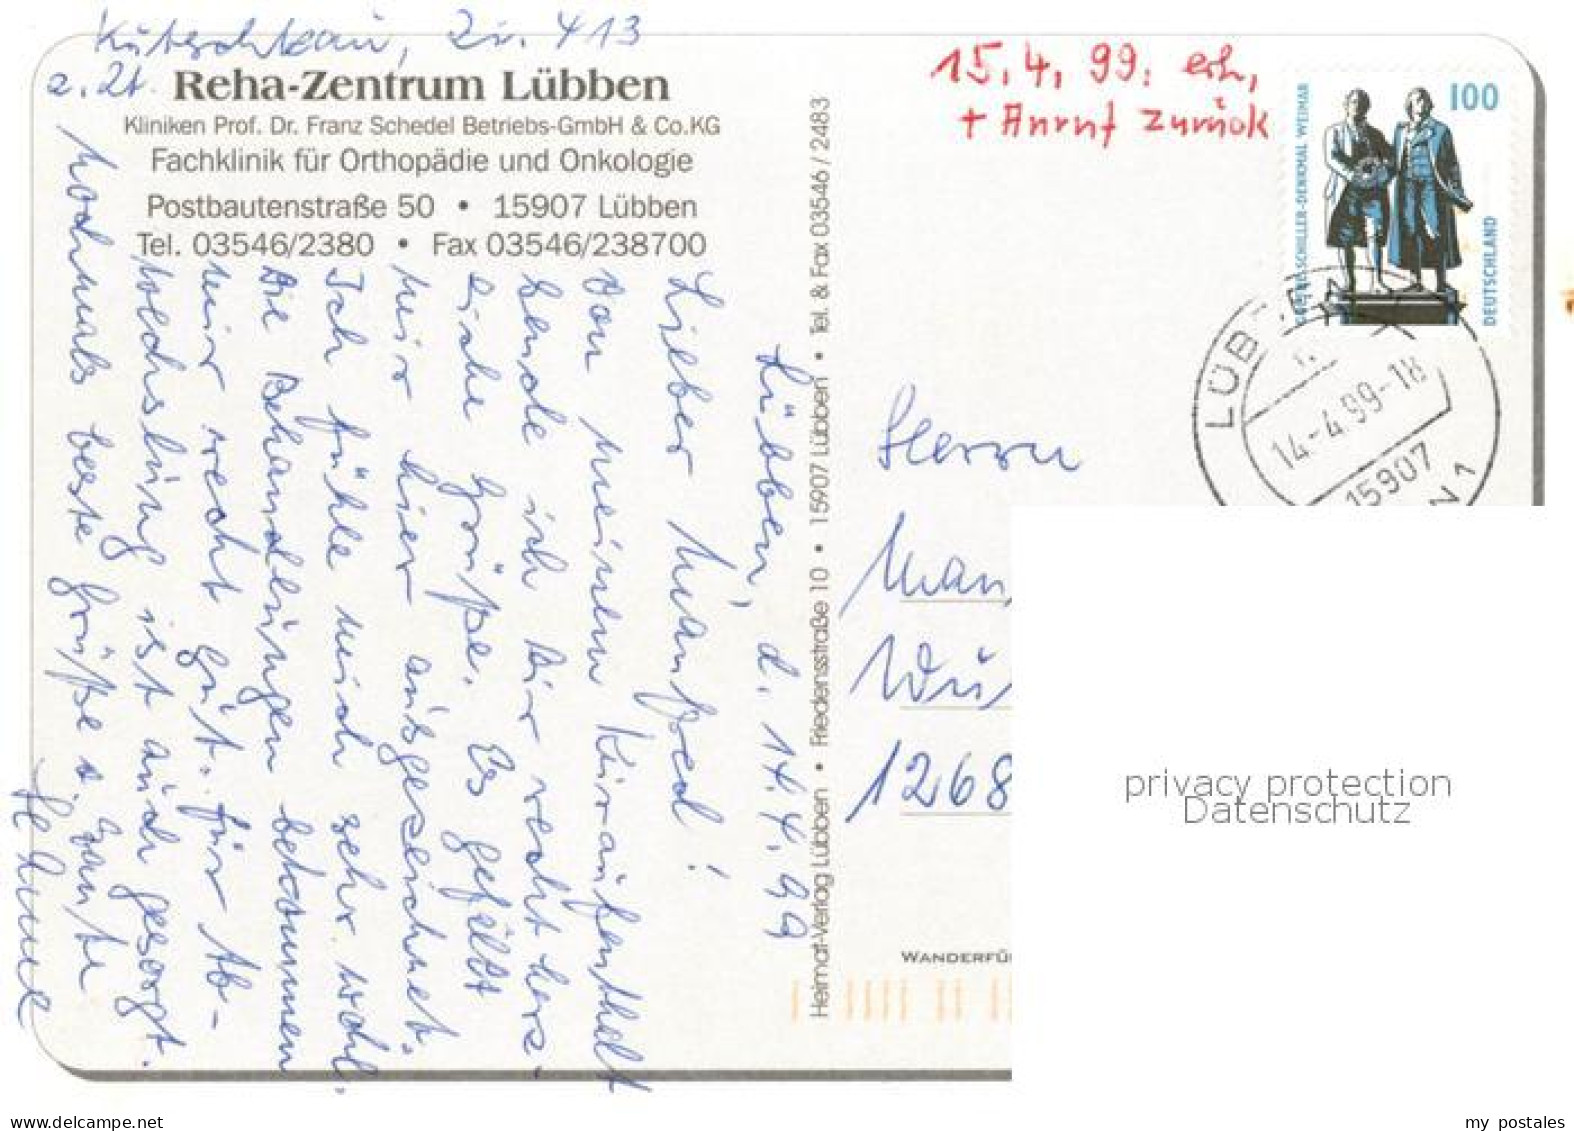 Kutschkau, Zi. 413
z. Zt.
Reha-Zentrum Lübben
Kliniken Prof. Dr. Franz Schedel Betriebs-GmbH & Co.KG
Fachklinik für Orthopädie und Onkologie
Postbautenstraße 50 • 15907 Lübben
Tel. 03546/2380 • Fax 03546/238700
Lübben, d. 14.4.99
Lieber Manfred!
Von meinem Kuraufenthalt
sende ich Dir recht herz-
liche Grüße. Es gefällt
mir hier ausgezeichnet.
Ich fühle mich sehr wohl.
Die Behandlungen bekommen
mir recht gut. Für Ab-
wechslung ist auch gesorgt.
Nochmals beste Grüße v. Tante
Heimat-Verlag Lübben • Friedensstraße 10 • 15907 Lübben • Tel. & Fax 03546 / 2483
15.4.99. erh,
+ Anruf zurück
100
SCHILLER-DENKMAL WEIMAR
DEUTSCHLAND
LÜBBEN
14-4.99-18
15907
Herrn
Man
Wu
1268
WANDERFÜ
privacy protection
Datenschutz
www.delcampe.net
my_postales